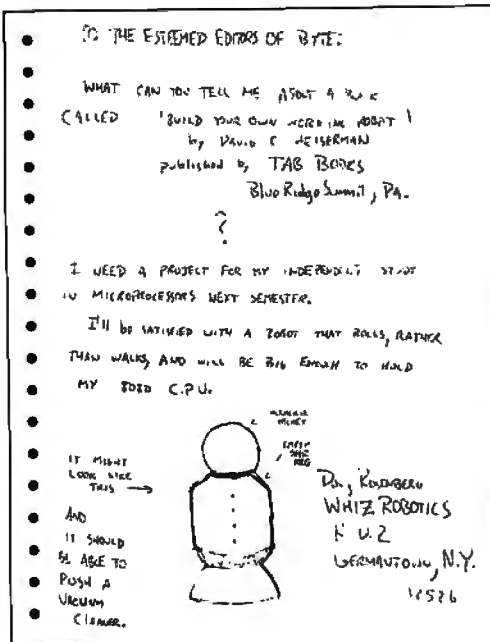 TO THE ESTEEMED EDITORS OF BYTE:
WHAT CAN YOU TELL ME ABOUT A BOOK
CALLED 'BUILD YOUR OWN WORKING ROBOT'
by DAVID L HEISERMAN
published by TAB BOOKS
Blue Ridge Summit, PA.
?
I NEED A PROJECT FOR MY INDEPENDENT STUDY
IN MICROPROCESSORS NEXT SEMESTER.
I'll be SATISFIED WITH A ROBOT THAT ROLLS, RATHER
THAN WALKS, AND WILL BE BIG ENOUGH TO HOLD
MY 8080 C.P.U.
HELMET
EMPTY
KEG
IT MIGHT
LOOK LIKE
THIS →
AND
IT SHOULD
BE ABLE TO
PUSH A
VACUUM
CLEANER.
Doug ROSENBERG
WHIZ ROBOTICS
GERMANTOWN, N.Y.
12526